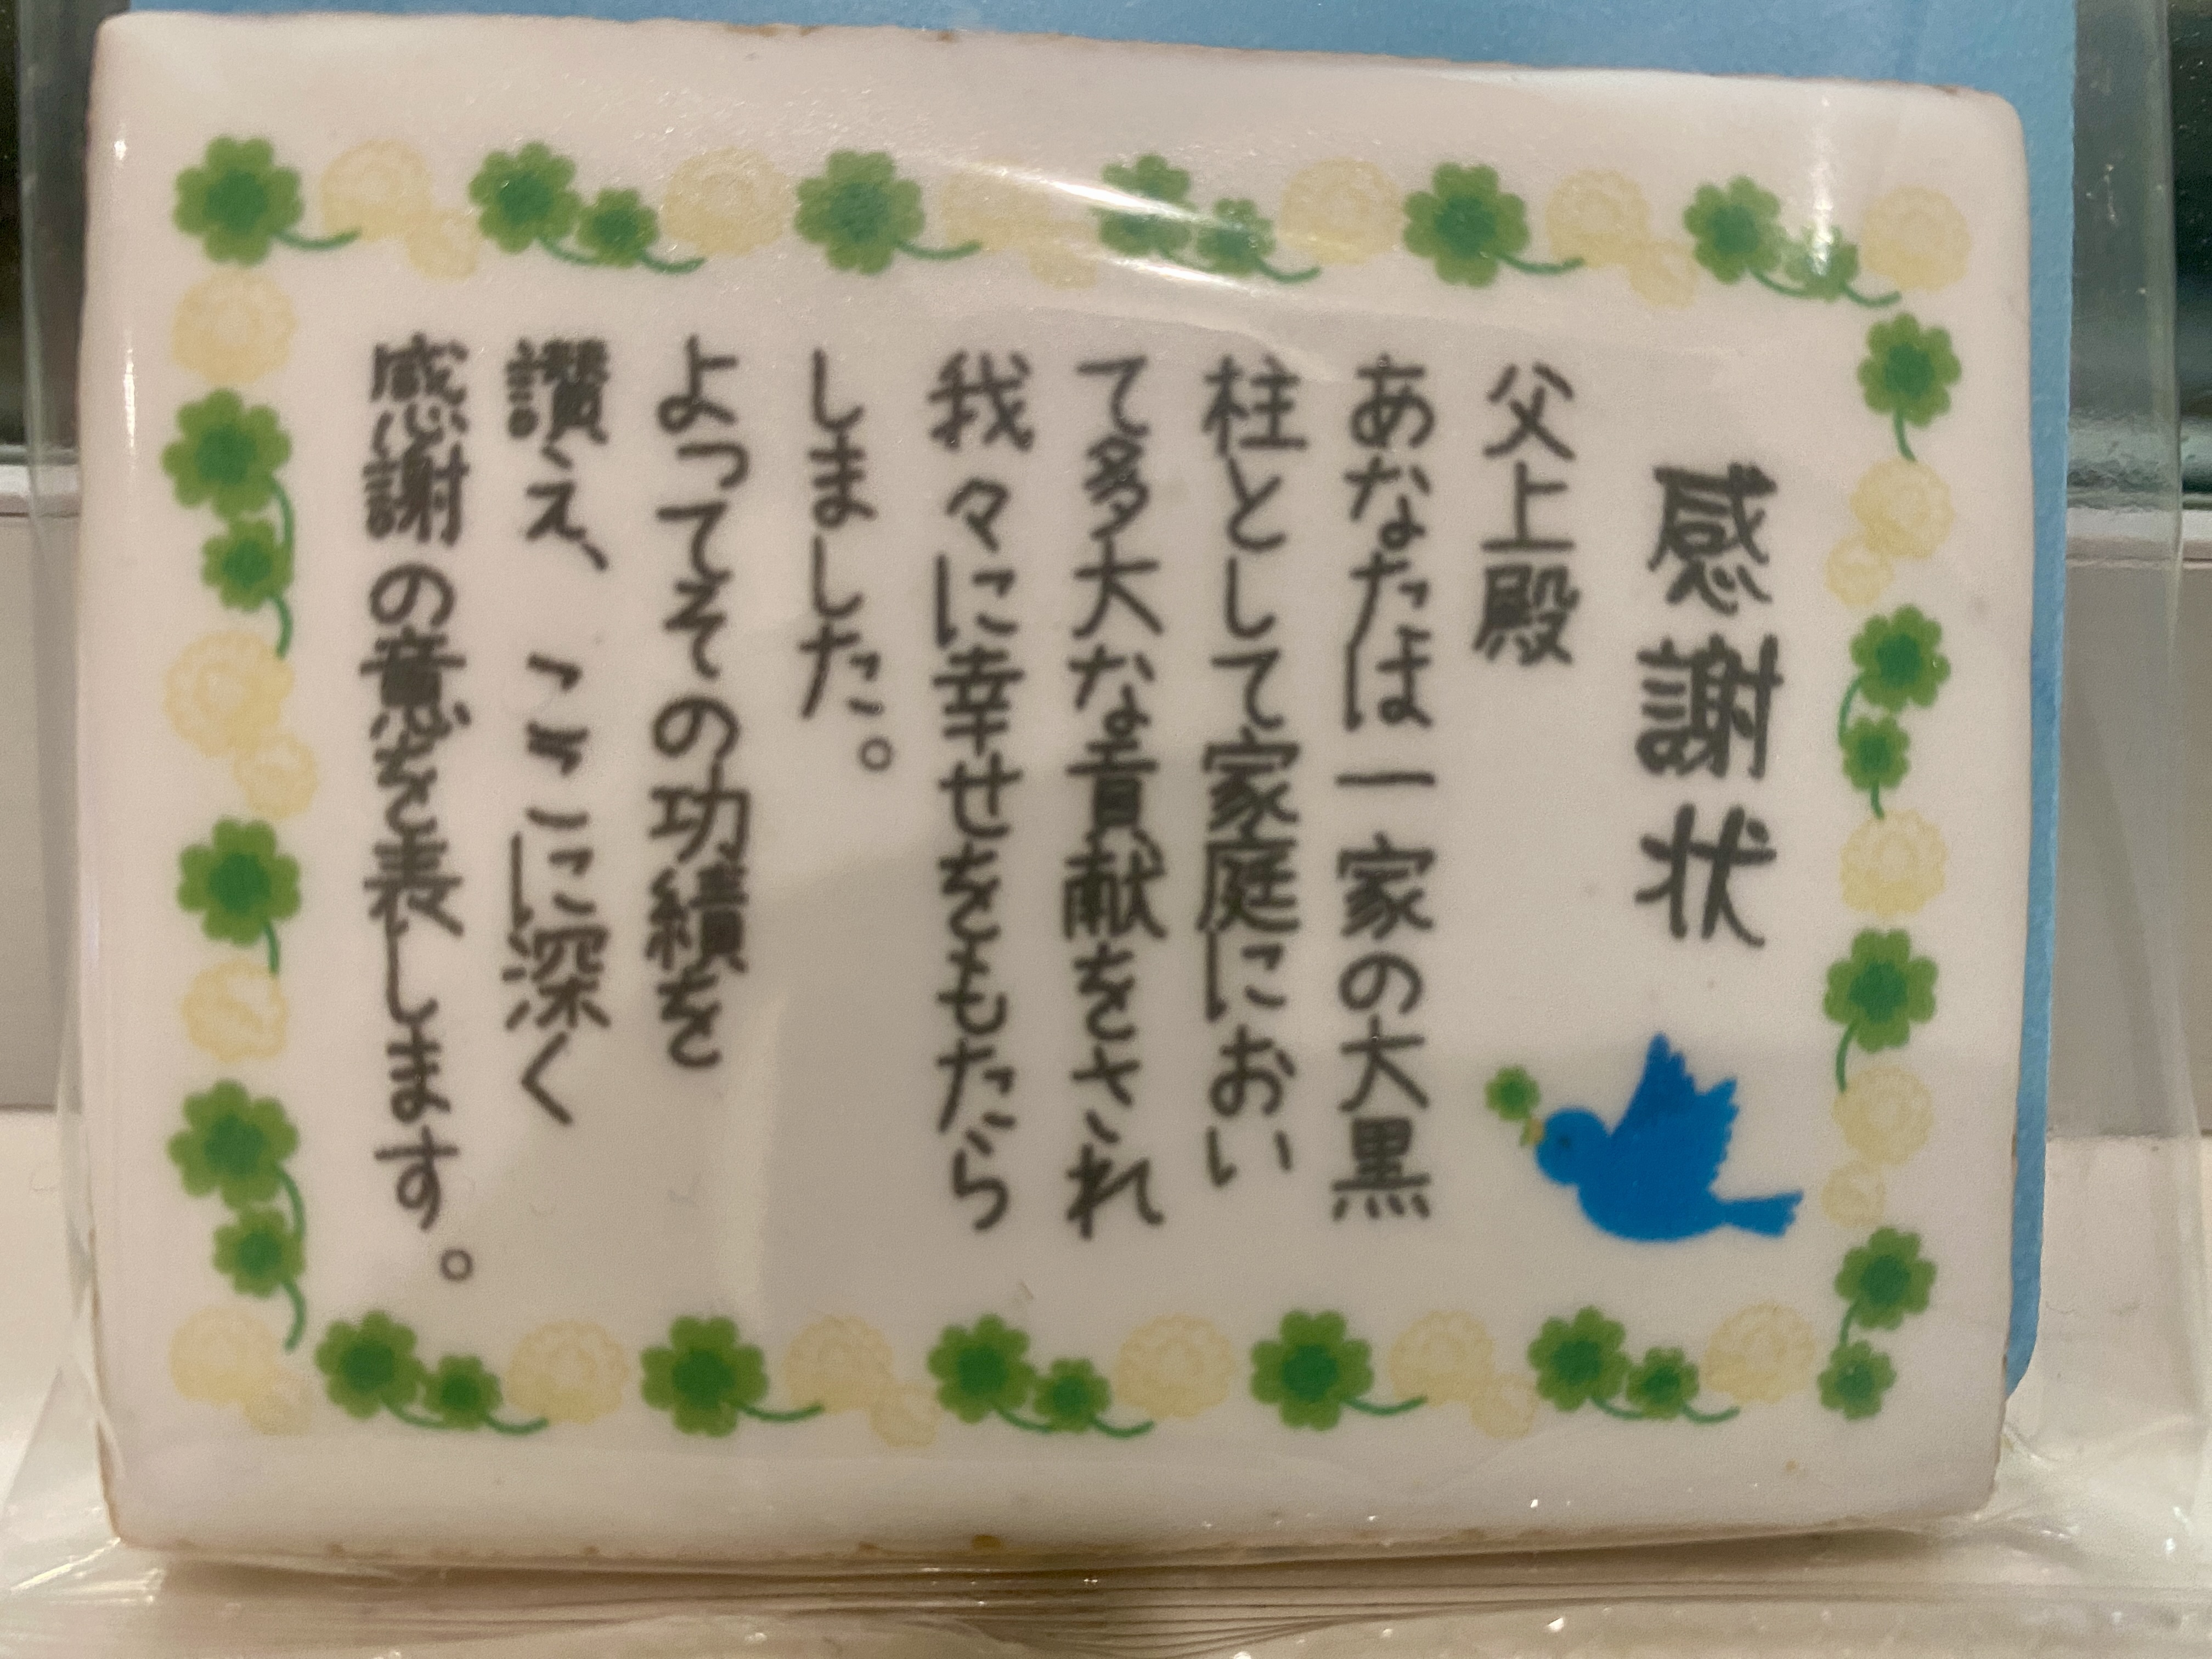 感謝状
父上殿
あなたは一家の大黒
柱として家庭におい
て多大な貢献をされ
我々に幸せをもたら
しました。
よってその功績を
讃え、ここに深く
感謝の意を表します。